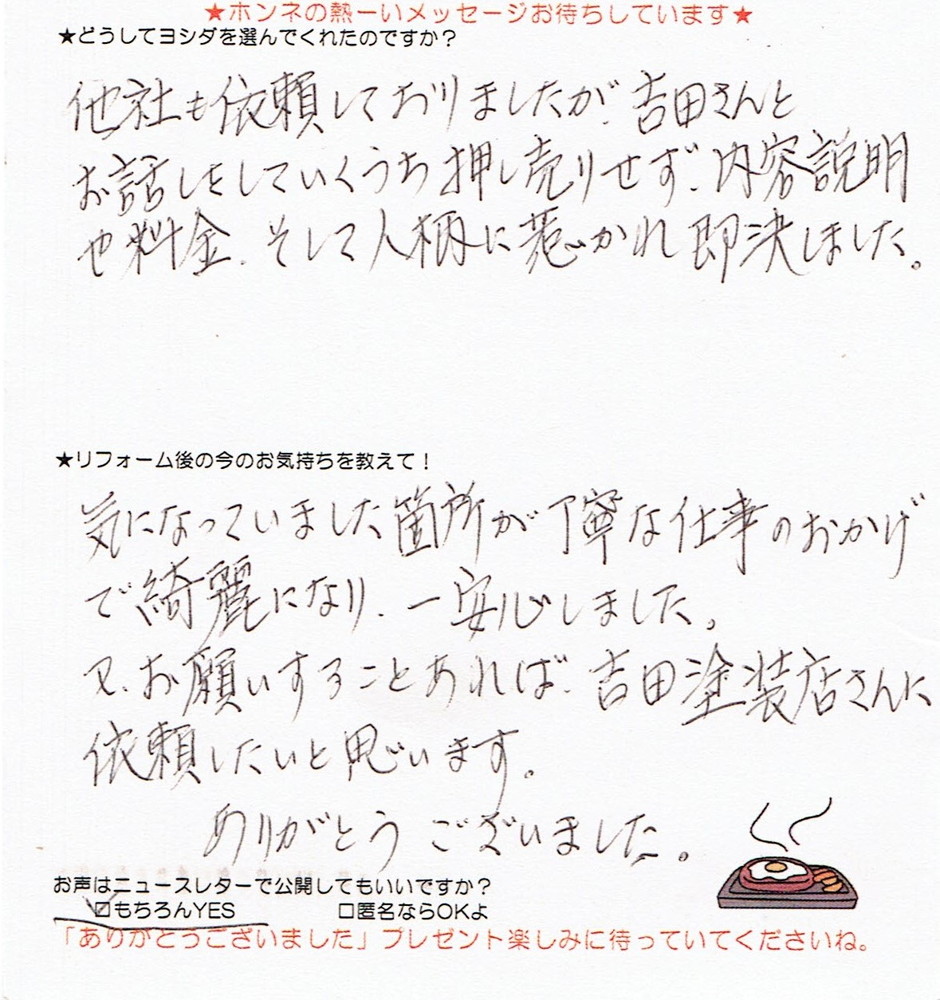 ★ホンネの熱ーいメッセージお待ちしています★
★どうしてヨシダを選んでくれたのですか？
他社も依頼しておりましたが、吉田さんと
お話しをしていくうち押し売りせず、内容説明
や料金、そして人柄に惹かれ即決しました。
★リフォーム後の今のお気持ちを教えて！
気になっていました箇所が丁寧な仕事のおかげ
で綺麗になり、一安心しました。
又、お願いすることあれば、吉田塗装店さんに
依頼したいと思います。
ありがとうございました。
お声はニュースレターで公開してもいいですか？
☑もちろんYES　□匿名ならOKよ
「ありがとうございました」プレゼント楽しみに待っていてくださいね。